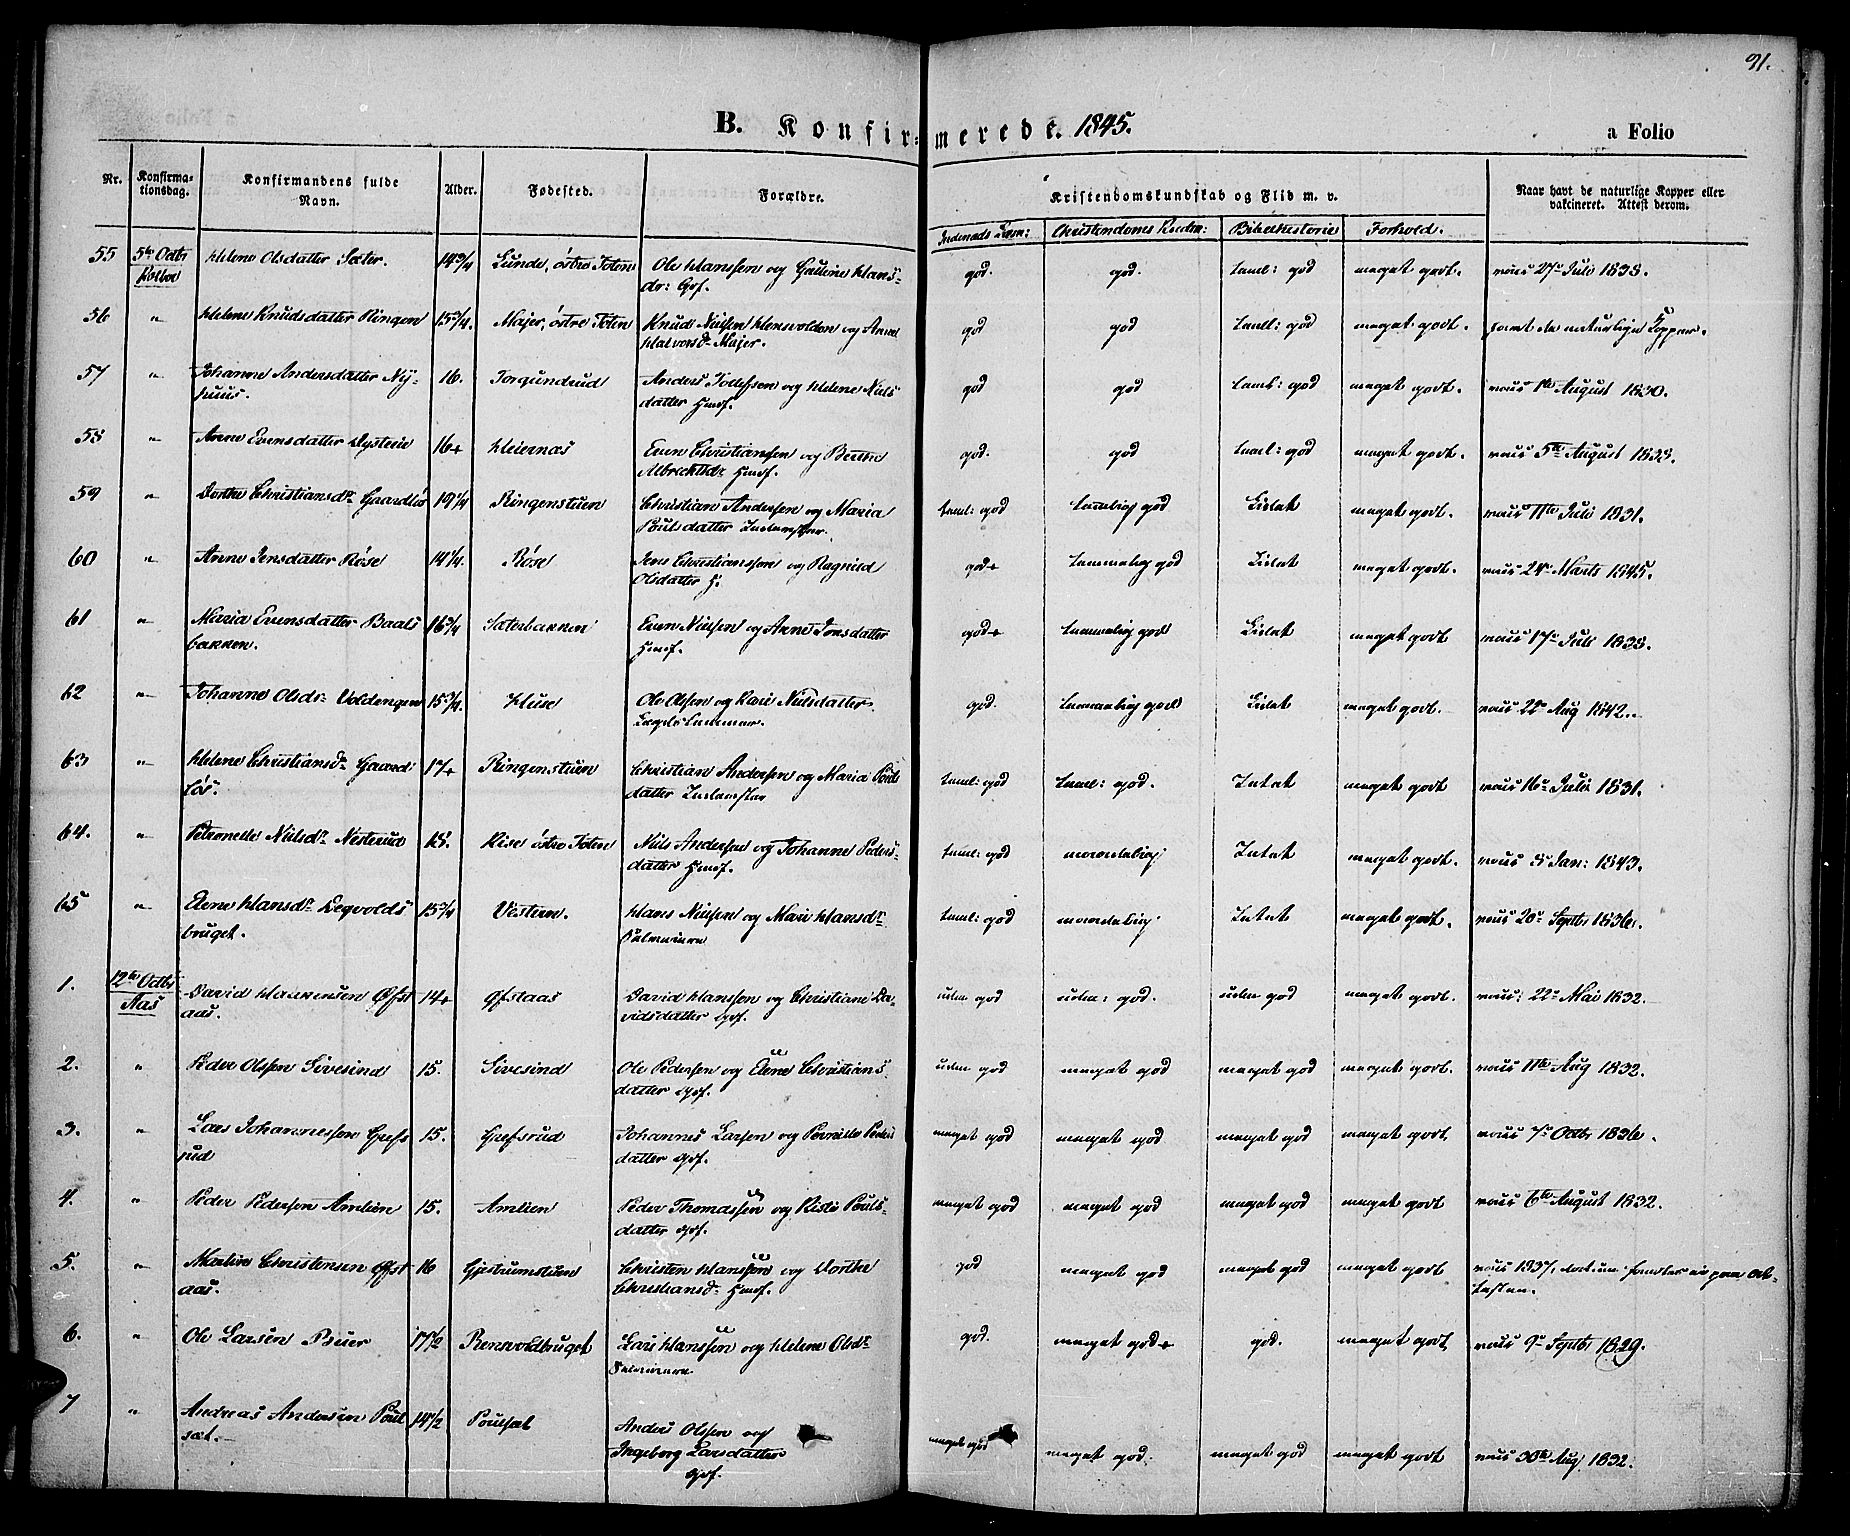 91.
B. Konfirmerede. 1845.
a Folio
Nr. Konfirmationsdag. Konfirmandens fulde Navn. Alder. Fødested. Forældre. Kristendomskundskab og Flid m. v. Naar havt de naturlige Kopper eller vakcineret. Attest derom.
Christendoms Kundsk: Bibelhistorie Forhold.
55 5te Octbr Kolbo Helene Olsdatter Sæter. 14 3/4 Lunde, østre Toten Ole Hanssen og Gulline Hans-
dr: Grf. god. god. taml: god meget godt. vacc 27de Juli 1833.
56 " Helene Knudsdatter Ringen 15 3/4. Majer, østre Toten Knud Nielsen Henvolden og Anne
Halvorsdr Majer. god god taml: god meget godt. havt de naturlige Kopper.
57 " Johanne Andersdatter Ny- 16. Torgundrud Anders Tollefssen og Helene Niels
huus. datter Hmdf. god god taml: god meget godt. vacc 1te August 1830.
58 " Anne Evensdatter Dysterie 16+ Heiernæs Even Christiansen og Berthe
Albrechtsdr Hmdf. god. god taml: god meget godt. vacc 5te August 1833.
59 " Dorthe Christiansdr Gaardløs 19 1/4 Ringenstuen Christian Andersen og Maria
Poulsdatter Inderster. taml: god temmelig god Lidet meget godt. vacc 11te Juli 1831.
60 " Anne Jensdatter Røse 14 1/4. Røse Jens Christianssen og Ragnild
Olsdatter H. god+ temmelig god Lidet meget godt. vacc 24de Marts 1845.
61 " Maria Evensdatter Baads 16 3/4 Sæterbakken Even Nielsen og Anne Jonsdatter
bakken. Hmdf. god+ temmelig god Lidet meget godt vacc 17de Juli 1833.
62 " Johanne Olsdr Voldengen 15 3/4. Huse Ole Olssen og Kari Nielsdatter
god. temmelig god Lidet meget godt. vacc 22de Aug 1842.
63 " Helene Christiansdr Gaard 17+ Ringenstuen Christian Andersen og Maria Pouls
løs. datter Inderster taml: god taml: god. Intet meget godt vacc 16de Juli 1831.
64. " Petronelle Nielsdr Nesterud 18. Rise østre Toten Niels Andersen og Johanne Peders-
datter Hmdf. taml: god maadelig Intet meget godt. vacc 8de Jan: 1843.
65 " Elene Hansdr Degvolds 15 3/4 Vestern. Hans Nielsen og Mari Hansdr
bruget. taml: god maadelig Intet meget godt. vacc 20de Septbr 1836.
1. 12te Octbr Aas David Haakensen Øfst 14+ Øfstaas David Hanssen og Christiane Da-
aas. vidsdatter Grf. uden god uden: god. uden god meget godt. vacc: 22de Mai 1832.
2. " Peder Olssen Sivesind 15. Sivesind Ole Pedersen og Elene Christians
datter Grf. uden god meget god meget god meget godt. vacc 11te Aug 1832.
3. " Lars Johannessen Grefs 15. Grefsrud Johannes Larsen og Pernille Peders
rud datter Grf. meget god meget god meget god meget godt, vacc 7de Octbr 1836.
4. " Peder Pedersen Amlien 15. Amlien Peder Thomassen og Kisti Pouls-
datter Grf. meget god meget god meget god meget godt vacc 6te August 1832.
5. " Martin Christensen Øfst 16 Gjestrumstuen Christen Hanssen og Dorthe
aas. Christiansdr Hmdf. god meget god meget god meget godt vacc 1837, datum findes ei paa At-
testen.
6. " Ole Larsen Buer 17 1/2 Rensvoldbruget Lars Hanssen og Helene Olsdr
god. meget god+ god. meget godt, vacc 9de Septbr 1829.
7 " Andreas Andersen Poul 14 1/2 Poulsæt Anders Olssen og
sæt. Ingeborg Larsdatter
Grf. meget god meget god. meget god meget godt vacc 30te Aug. 1832.